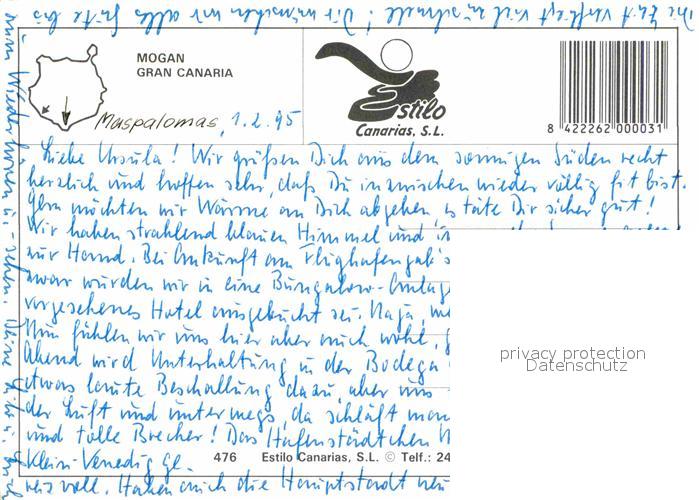 MOGAN
GRAN CANARIA
Estilo
Canarias, S.L.
8 422262 000031
Maspalomas, 1.2.95
Liebe Ursula! Wir grüßen Dich aus dem sonnigen Süden recht
herzlich und hoffen sehr, daß Du inzwischen wieder völlig fit bist.
Gern möchten wir Wärme an Dich abgeben, es täte Dir sicher gut!
Wir haben strahlend blauen Himmel und
zur Hand. Bei Ankunft am Flughafen gab's
zwar wurden wir in eine Bungalow-Anlag
vorgesehenes Hotel ausgebucht sei. Naja,
Nun fühlen wir uns hier aber auch wohl,
Abend wird Unterhaltung in der Bodega
etwas laute Beschallung dazu, aber uns
der Luft und unterwegs, da schläft man
und tolle Boecher! Das Hafenstädtchen
Klein-Venedig ge.
reizvoll. Haben auch die Hauptstadt
476 Estilo Canarias, S.L. © Telf.: 24
privacy protection
Datenschutz
Die Zeit verfliegt viel zu schnell! Dir wünschen wir alles Gute bis
zum Wiederhören u. -sehen. Deine